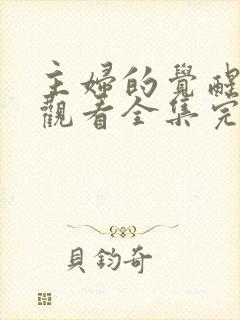 主婦的覺醒
觀看全集完
貝鈞奇